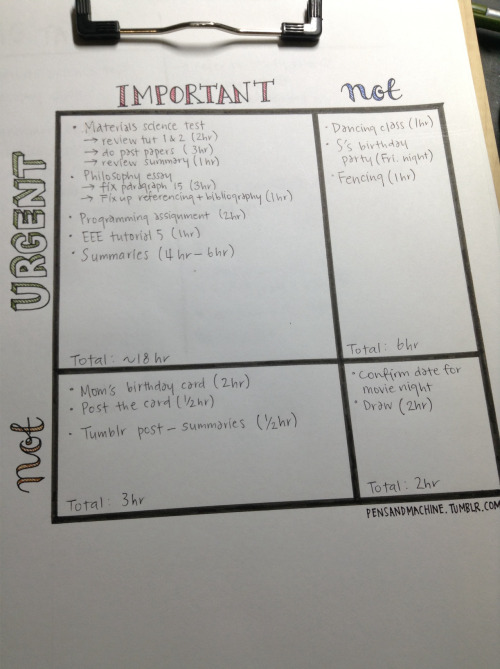 IMPORTANT
not
URGENT
• Materials science test
→ review tut 1 & 2 (2hr)
→ do past papers (3hr)
→ review summary (1hr)
• Philosophy essay
→ fix paragraph 15 (3hr)
→ Fix up referencing + bibliography (1hr)
• Programming assignment (2hr)
• EEE tutorial 5 (1hr)
• Summaries (4hr – 6hr)
Total: ~18hr
• Dancing class (1hr)
• S's birthday
party (Fri. night)
• Fencing (1hr)
Total: 6hr
not
• Mom's birthday card (2hr)
• Post the card (½hr)
• Tumblr post – summaries (½hr)
Total: 3hr
• Confirm date for
movie night
• Draw (2hr)
Total: 2hr
PENSANDMACHINE.TUMBLR.COM